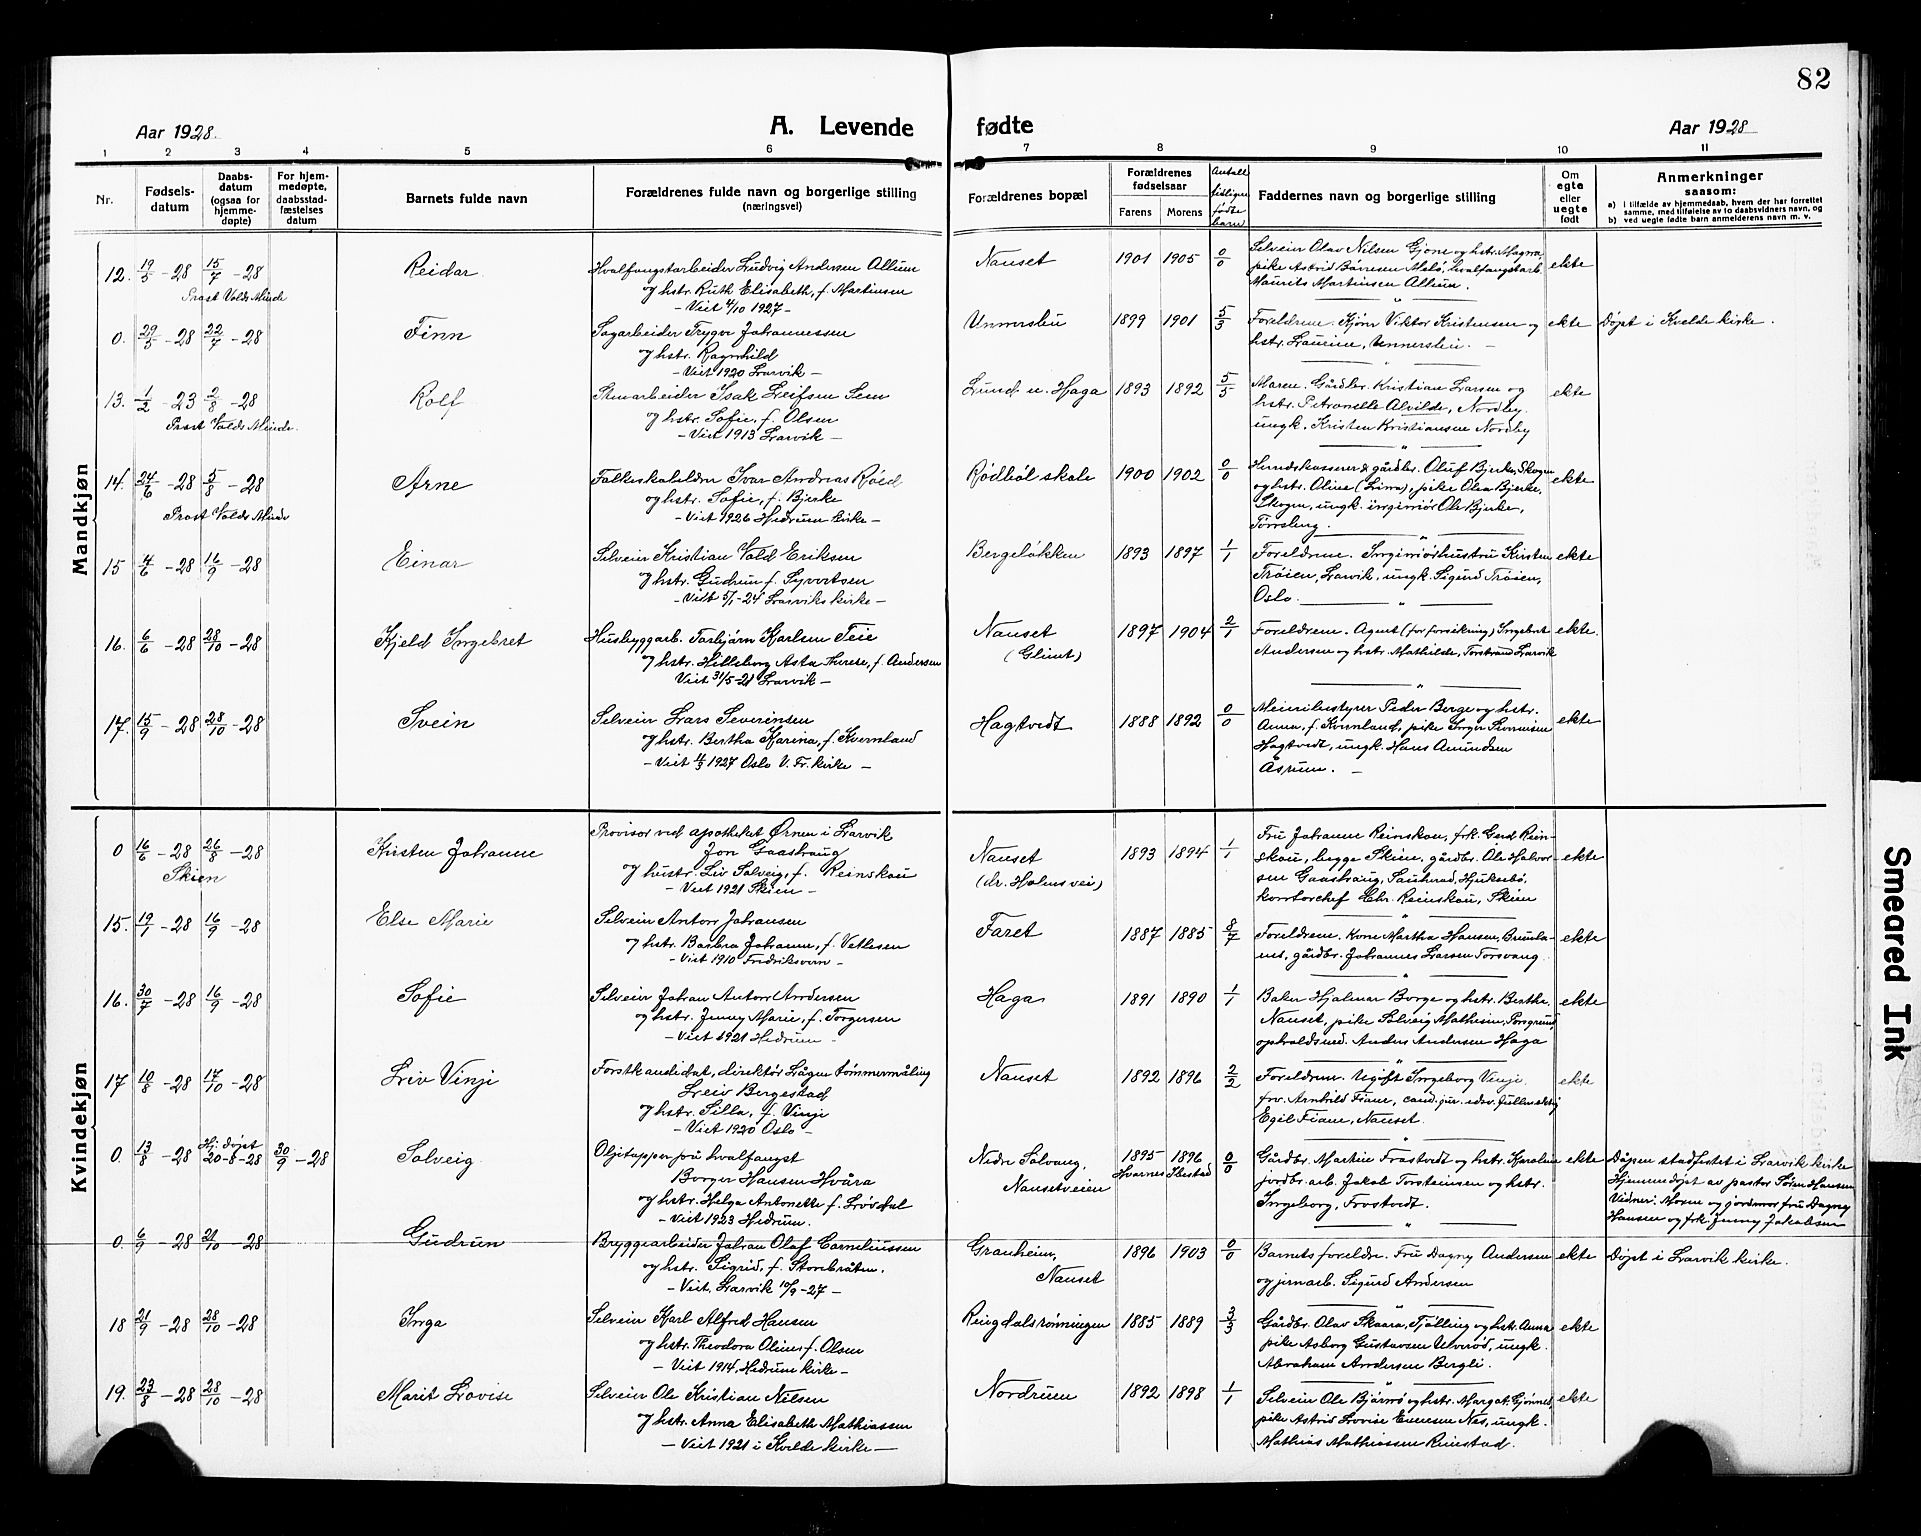 82
Aar 1928.
A. Levende
fødte
Aar 1928
1 2 3 4 5 6 7 8 9 10 11
Nr.
Fødsels-
datum
Daabs-
datum
(ogsaa for
hjemme-
døpte)
For hjem-
medøpte,
daabsstad-
fæstelses
datum
Barnets fulde navn
Forældrenes fulde navn og borgerlige stilling
(næringsvei)
Forældrenes bopæl
Forældrenes
fødselsaar
Farens Morens
Antall
tidligere
fødte
barn
Faddernes navn og borgerlige stilling
Om
egte
eller
uegte
født
Anmerkninger
saasom:
a) i tilfælde av hjemmedaab, hvem der har forrettet
samme, med tilføielse av to daabsvidners navn, og
b) ved uegte fødte barn anmelderens navn m. v.
Mandkjøn
12. 19/5 -28 15/7 -28 Reidar
Prost Valds Minde
Hvalfangstarbeider Ludvig Andersen Allum
og hstr. Ruth Elisabeth, f. Martinsen
- Viet 4/10 1927 -
Nanset 1901 1905 0/0
Selveier Olav Nilsen Gjone og hstr. Magna,
pike Astrid Melø, hvalfangstarb.
Maurits Martinsen Allum.
ekte
0. 29/5 -28 22/7 -28 Finn
Sagarbeider Trygve Johannessen
og hstr. Ragnhild
- Viet 1920 Larvik -
Unnerslu 1899 1901 5/3
Foreldrene. Viktor Kristensen og
hstr. Laurine, -
ekte Døpt i Kvelde kirke.
13. 1/2 -23 2/8 -28 Rolf
Prost Valds Minde.
Stenarbeider Isak Leifsen Sem
og hstr. Sofie, f. Olsen
- Viet 1913 Larvik -
Lund u. Haga 1893 1892 5/5
Moren. Gårdbr. Kristian Larsen og
hstr. Petronelle Alvilde, Nordby.
ungk. Kristen Kristiansen Nordby
ekte
14. 24/6 -28 5/8 -28 Arne
Prost Valds Minde
Folkeskolelærer Ivar Andreas Røed
og hstr. Sofie, f. Bjerke
- Viet 1926 Hedrum kirke -
Rødbøl skole 1900 1902 0/0
Herredskasserer & gårdbr. Oluf Bjerke, Skogen
og hstr. Oline (Lina), pike Olea Bjerke,
Skogen, ungk. ingeniør Ole Bjerke,
Tønsberg.
ekte
15 4/6 -28 16/9 -28 Einar
Selveier Kristian Vold Eriksen
og hstr. Gudrun f. Syvertsen
- Vidt 5/1 -24 Larviks kirke -
Bergeløkken 1893 1897 1/1
Foreldrene. Ingeniørhustru Kirsten
Trøien, Larvik, ungk. Sigurd Trøien,
Oslo.
ekte
16. 6/6 -28 28/10 -28 Kjeld Ingebret
Husbyggarb. Torbjørn Karlsen Teie
og hstr. Hilleborg Asta Therese, f. Andersen
Viet 31/5-21 Larvik -
Nanset
(Glimt)
1897 1904 2/1
Foreldrene. Agent (for forsikring) Ingebret
Andersen og hstr. Mathilde, Torstrand Larvik
ekte.
17. 15/9 -28 28/10 -28 Svein
Selveier Lars Severinsen
og hstr. Bertha Karina, f. Kvernland
- Viet 4/3 1927 Oslo V. Fr. kirke -
Hagtvedt 1888 1892 0/0
Meieribestyrer Peder Berge og hstr.
Anna, f. Kvernland, pike Inger Severinsen
Hagtvedt, ungk. Hans Amundsen
Åsrum. -
ekte
Kvindekjøn
0 16/6 -28 26/8 -28 Kirsten Johanne
Skien
Provisor ved apotheket Ørnen i Larvik
Jon Gaashaug
og hustr. Liv Solveig, f. Reinskou
- Viet 1921 Skien -
Nanset
(dr. Holms vei)
1893 1894 1/1
Fru Johanne Reinskou, frk. Gerd Rein-
skou, begge Skien, gårdbr. Ole Halvor-
sen Gaashaug, Sauherad, Hjuksebø,
kontorchef Chr. Reinskou, Skien
ekte
15. 19/1 -28 16/9 -28 Else Marie
Selveier Anton Johansen
og hstr. Barbra Johanne, f. Vetlesen
- Viet 1910 Fredriksvern -
Faret 1887 1885 8/7
Foreldrene. Kone Martha Hansen, Brunla-
nes, gårdbr. Johannes Larsen Torsvang.
ekte
16. 30/7 -28 16/9 -28 Sofie
Selveier Johan Anton Andersen
og hstr. Jenny Marie, f. Torgersen
- Viet 1921 Hedrum -
Haga 1891 1890 1/1
Baker Hjalmar Borge og hstr. Berthe,
Nanset, pike Solveig Mathisen, Porsgrund
opholdsmd. Anders Andersen Haga
ekte
17 10/8 -28 17/10 -28 Liv Vinje
Forstkandidat, direktør Lågen tømmermåling
Leiv Bergestad
og hstr. Silla, f. Vinje
- Viet 1920 Oslo -
Nanset 1892 1896 2/2
Foreldrene. Ugift Ingeborg Vinje.
frv. Arnhild Fiane, cand. jur. adv. fullmektig
Egil Fiane, Nanset.
ekte
0. 13/8 -28 Hj. døpt 20-8-28 30/9 -28 Solveig
Oljetapper på hvalfangst
Borger Hansen Hvåra
og hstr. Helga Antonette f. Lövdal
- Viet 1923 Hedrum.
Nedre Solvang,
Nansetveien
1895 1896 0/0
Hvarnes
Gårdbr. Martin Frostvedt og hstr. Karoline
jordbr. arb. Jakob Torsteinsen og hstr.
Ingeborg, Frostvedt.
ekte Dåpen stadfestet i Larvik kirke
Hjemmedøpt av pastor Søren Hansen
Vidner: Moren og jordmor fru Dagny
Hansen og frk. Jenny Jakobsen
0. 6/9 -28 21/10 -28 Gudrun
Bryggearbeider Johan Olaf Corneliussen
og hstr. Sigrid, f. Storebråten.
- Viet, Larvik 10/9 -27 -
Granheim,
Nanset
1896 1903 0/0
Barnets foreldre. Fru Dagny Andersen
og jernarb. Sigurd Andersen
ekte Døpt i Larvik kirke.
18 21/9 -28 28/10 -28 Inga
Selveier Karl Alfred Hansen
og hstr. Theodora Oline, f. Olsen
- Viet 1914, Hedrum kirke -
Ringdalsrønningen 1885 1889 3/3
Gårdbr. Olav Skaara, Tjølling og hstr. Anna
pike Asborg Gustavsen Ulverød, ungk.
Abraham Andersen Bergli.
ekte
19. 23/8 -28 28/10 -28 Marit Lovise
Selveier Ole Kristian Nilsen
og hstr. Anna Elisabeth Mathiassen
- Viet 1921 i Kvelde kirke -
Nordrum 1892 1898 1/1
Selveier Ole Bjørnø og hstr. Margat. Gjønnes
pike Astrid Lovise Nes, ungk.
Mathias Mathiassen Rimstad.
ekte
Smeared Ink